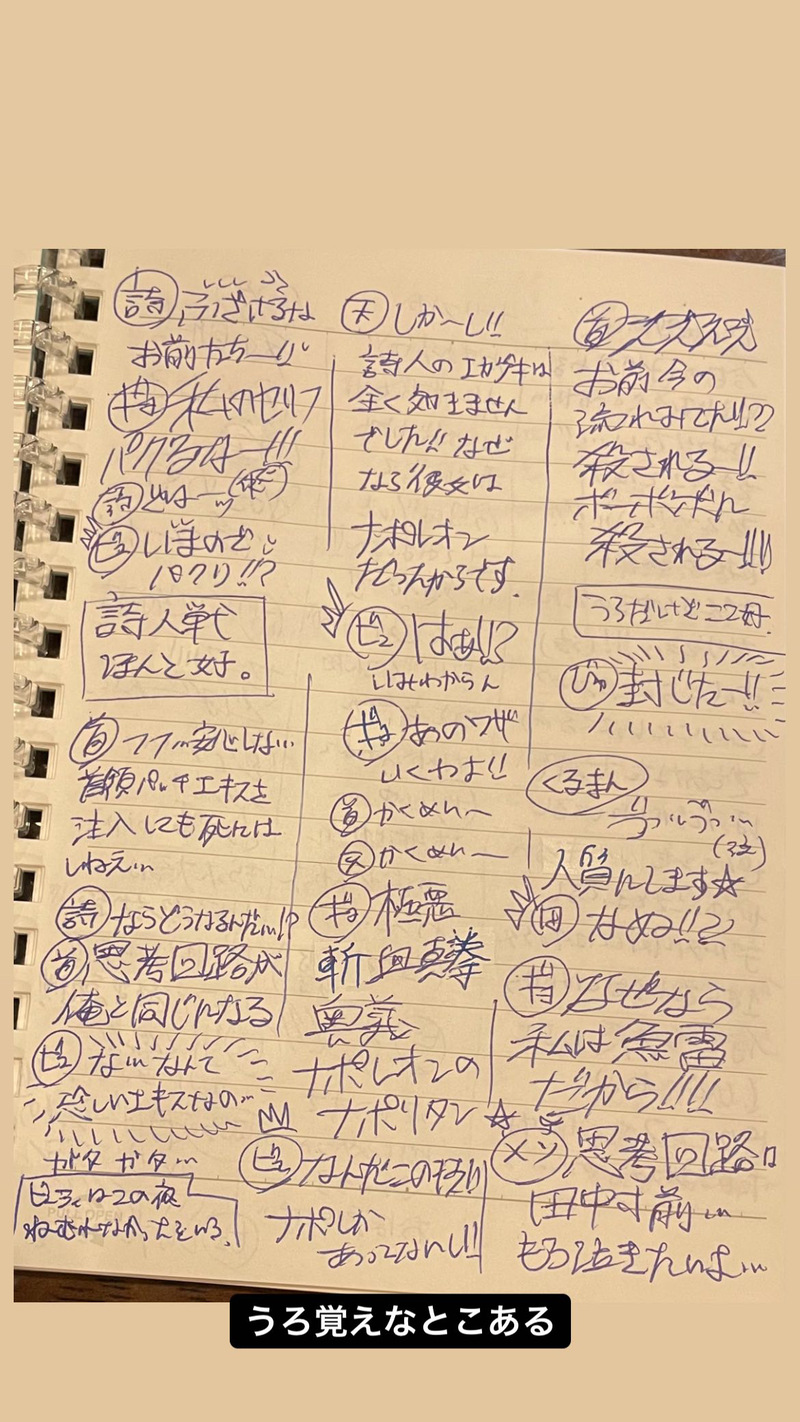 詩 ふざけるな
お前たちーー!!
ギョ 私のセリフ
パクるなーー!!!
詩 どはーー
ビュ いまのどこ
パクリ!!?
詩人戦
ほんと好。
首 フフ…安心しな…
首領パッチエキスを
注入しても死には
しねえ…
詩 ならどうなるんだ…!?
首 思考回路が
俺と同じになる
ビュ な…なんて
恐しいエキスなの…
ガタガタ…
ビュティはこの夜
ねむれなかったという。
天 しか〜し!!
詩人のエガキは
全く効きません
でした!! なぜ
なら彼女は
ナポレオン
だったからです。
ビュ はあ!!?
いみわからん
ギョ あのワザ
いくわよ!!
首 かくめい〜
天 かくめいー
ギョ 極悪
斬血真拳
奥義
ナポレオンの
ナポリタン☆
ビュ なんだこの
ナポしか
あってないし!!
首
お前今の
流れみてた!!?
殺されるー!!
ボーボボに
殺されるー!!!
うろだけどここ好。
ビュ 封じたー!!
くるまん
人質にします☆
田 なぬ!!?
ギョ なぜなら
私は魚雷
だから!!!!
メソ 思考回路は
田中寸前…
もう泣きたいよ…
うろ覚えなとこある